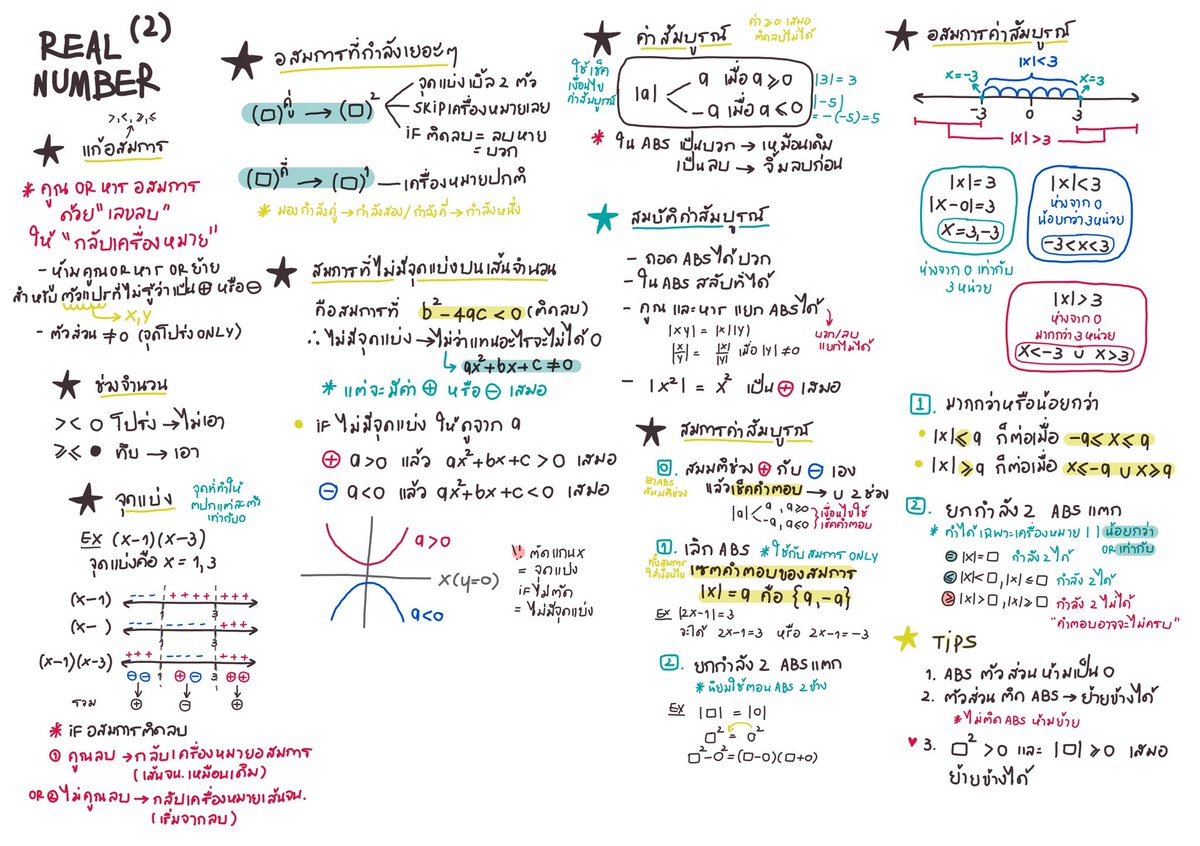 REAL (2)
NUMBER
>,<,≥,≤
★ แก้อสมการ
* คูณ OR หาร อสมการ
ด้วย "เลขลบ"
ให้ "กลับเครื่องหมาย"
- ห้ามคูณ OR หาร OR ย้าย
สำหรับตัวแปรที่ไม่รู้ว่าเป็น ⊕ หรือ ⊖
→ X,Y
- ตัวส่วน ≠ 0 (จุดโปร่ง ONLY)
★ ช่วงจำนวน
> < ○ โปร่ง → ไม่เอา
≥ ≤ ● ทึบ → เอา
★ จุดแบ่ง
จุดที่ทำให้
ตปกแต่ละตัว
เท่ากับ 0
EX (x-1)(x-3)
จุดแบ่งคือ x = 1, 3
(x-1) --- ++++ +++
1 3
(x- ) --- ---- +++
1 3
(x-1)(x-3) +++ ---- +++
⊖⊖ 1 ⊕⊖ 3 ⊕⊕
รวม ⊕ ⊖ ⊕
* iF อสมการติดลบ
① คูณลบ → กลับเครื่องหมายอสมการ
(เส้นจน. เหมือนเดิม)
OR ② ไม่คูณลบ → กลับเครื่องหมายเส้นจน.
(เริ่มจากลบ)
★ อสมการที่กำลังเยอะๆ
(□)คู่ → (□)²
จุดแบ่งเบิ้ล 2 ตัว
SKIP เครื่องหมายเลย
iF ติดลบ = ลบหาย
= บวก
(□)คี่ → (□)¹ — เครื่องหมายปกติ
* มองกำลังคู่ → กำลังสอง / กำลังคี่ → กำลังหนึ่ง
★ สมการที่ไม่มีจุดแบ่งบนเส้นจำนวน
คือสมการที่ b²-4ac < 0 (ติดลบ)
∴ ไม่มีจุดแบ่ง → ไม่ว่าแทนอะไรจะไม่ได้ 0
↳ ax²+bx+c ≠ 0
* แต่จะมีค่า ⊕ หรือ ⊖ เสมอ
• iF ไม่มีจุดแบ่ง ให้ดูจาก a
⊕ a>0 แล้ว ax²+bx+c > 0 เสมอ
⊖ a<0 แล้ว ax²+bx+c < 0 เสมอ
a>0
X (y=0)
a<0
!! ตัดแกน x
= จุดแบ่ง
iF ไม่ตัด
= ไม่มีจุดแบ่ง
★ ค่าสัมบูรณ์
ค่า ≥ 0 เสมอ
ติดลบไม่ได้
ใช้เช็ค
เงื่อนไข
ค่าสัมบูรณ์
|a| < a เมื่อ a ≥ 0
-a เมื่อ a ≤ 0
|3| = 3
|-5|
= -(-5) = 5
* ใน ABS เป็นบวก → เหมือนเดิม
เป็นลบ → จิ้มลบก่อน
★ สมบัติค่าสัมบูรณ์
- ถอด ABS ได้บวก
- ใน ABS สลับที่ได้
- คูณ และหาร แยก ABS ได้
|xy| = |x||y|
|x/y| = |x|/|y| เมื่อ |y| ≠ 0
บวก/ลบ
แยกไม่ได้
- |x²| = x² เป็น ⊕ เสมอ
★ สมการค่าสัมบูรณ์
0. สมมติช่วง ⊕ กับ ⊖ เอง
แล้วเช็คคำตอบ → ∪ 2 ช่วง
|a| < a, a≥0
-a, a≤0
เงื่อนไขใช้
เช็คคำตอบ
1. เลิก ABS * ใช้กับสมการ ONLY
เซตคำตอบของสมการ
|x| = a คือ {a, -a}
EX |2x-1| = 3
จะได้ 2x-1=3 หรือ 2x-1=-3
2. ยกกำลัง 2 ABS แตก
* นิยมใช้ตอน ABS 2 ข้าง
EX |□| = |○|
□² = ○²
□²-○² = (□-○)(□+○)
★ อสมการค่าสัมบูรณ์
|x|<3
x=-3 x=3
-3 0 3
|x|>3
|x|=3
|x-0|=3
x=3,-3
ห่างจาก 0 เท่ากับ
3 หน่วย
|x|<3
ห่างจาก 0
น้อยกว่า 3 หน่วย
-3<x<3
|x|>3
ห่างจาก 0
มากกว่า 3 หน่วย
x<-3 ∪ x>3
1. มากกว่าหรือน้อยกว่า
• |x| ≤ a ก็ต่อเมื่อ -a ≤ x ≤ a
• |x| ≥ a ก็ต่อเมื่อ x ≤ -a ∪ x ≥ a
2. ยกกำลัง 2 ABS แตก
* ทำได้เฉพาะเครื่องหมาย | | น้อยกว่า
OR เท่ากับ
= |x|=□ กำลัง 2 ได้
≤ |x|<□, |x|≤□ กำลัง 2 ได้
≥ |x|>□, |x|≥□ กำลัง 2 ไม่ได้
"คำตอบอาจจะไม่ครบ"
★ TiPS
1. ABS ตัวส่วน ห้ามเป็น 0
2. ตัวส่วน ติด ABS → ย้ายข้างได้
* ไม่ติด ABS ห้ามย้าย
♥ 3. □² > 0 และ |□| ≥ 0 เสมอ
ย้ายข้างได้